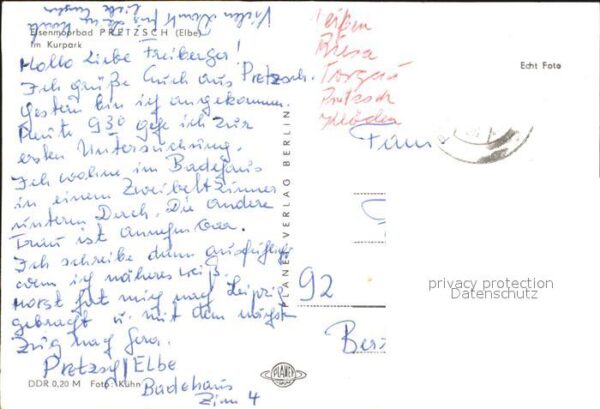 Vielen Dank für
Liebe
Eisenmoorbad PRETZSCH (Elbe)
Im Kurpark
Hallo Liebe Freiberger!
Ich grüße Euch aus Pretzsch.
Gestern bin ich angekommen.
Heute 9³⁰ gehe ich zur
ersten Untersuchung.
Ich wohne im Badehaus
in einem Zweibettzimmer
unterm Dach. Die andere
Frau ist annehmbar.
Ich schreibe dann ausführlich
wenn ich näheres weiß.
Horst hat mich nach Leipzig
gebracht u. mit dem nächst
Zug nach Gera.
Pretzsch/Elbe
Badehaus
Zim 4
DDR 0,20 M Foto: Kühn
PLANET VERLAG BERLIN
PLANET
Riesa
Torgau
Pretzsch
Echt Foto
Fam
92
Ber
privacy protection
Datenschutz